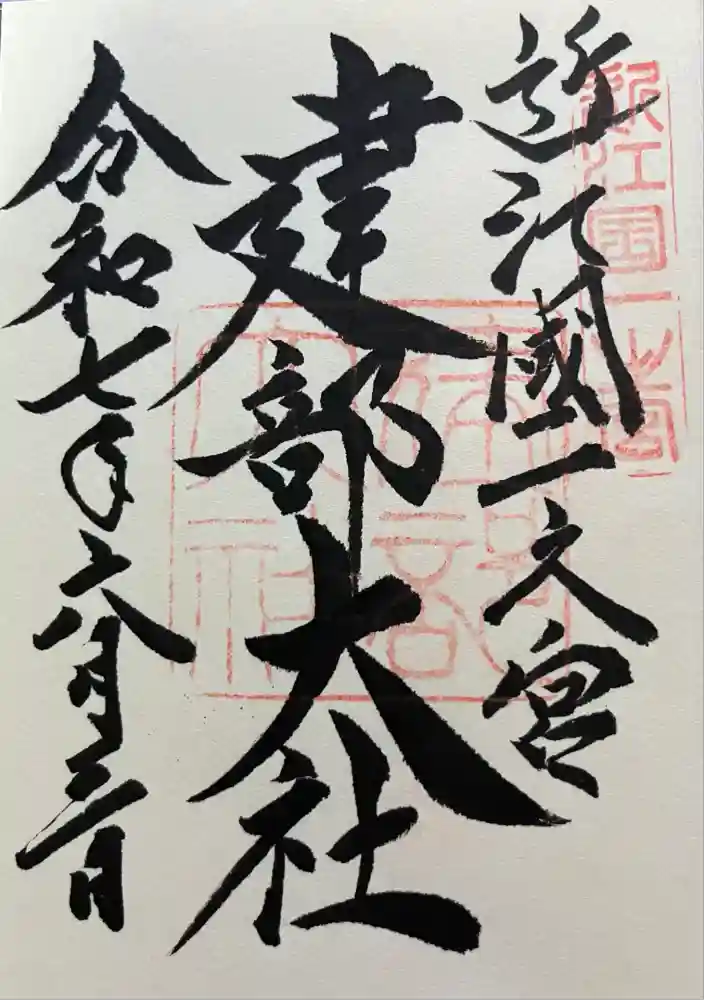 近江國一之宮
建部大社
令和七年六月三日
近江国一之宮
建部大社